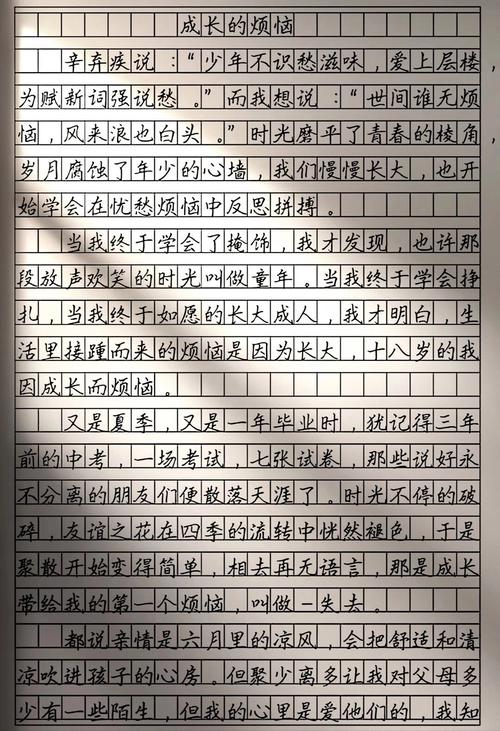 成长的烦恼
辛弃疾说：“少年不识愁滋味，爱上层楼，
为赋新词强说愁。”而我想说：“世间谁无烦
恼，风来浪也白头。”时光磨平了青春的棱角，
岁月腐蚀了年少的心墙，我们慢慢长大，也开
始学会在忧愁烦恼中反思拼搏。
当我终于学会了掩饰，我才发现，也许那
段放声欢笑的时光叫做童年。当我终于学会挣
扎，当我终于如愿的长大成人，我才明白，生
活里接踵而来的烦恼是因为长大，十八岁的我
因成长而烦恼。
又是夏季，又是一年毕业时，犹记得三年
前的中考，一场考试，七张试卷，那些说好永
不分离的朋友们便散落天涯了。时光不停的破
碎，友谊之花在四季的流转中恍然褪色，于是
聚散开始变得简单，相去再无语言，那是成长
带给我的第一个烦恼，叫做－失去。
都说亲情是六月里的凉风，会把舒适和清
凉吹进孩子的心房。但聚少离多让我对父母多
少有一些陌生，但我的心里是爱他们的，我知